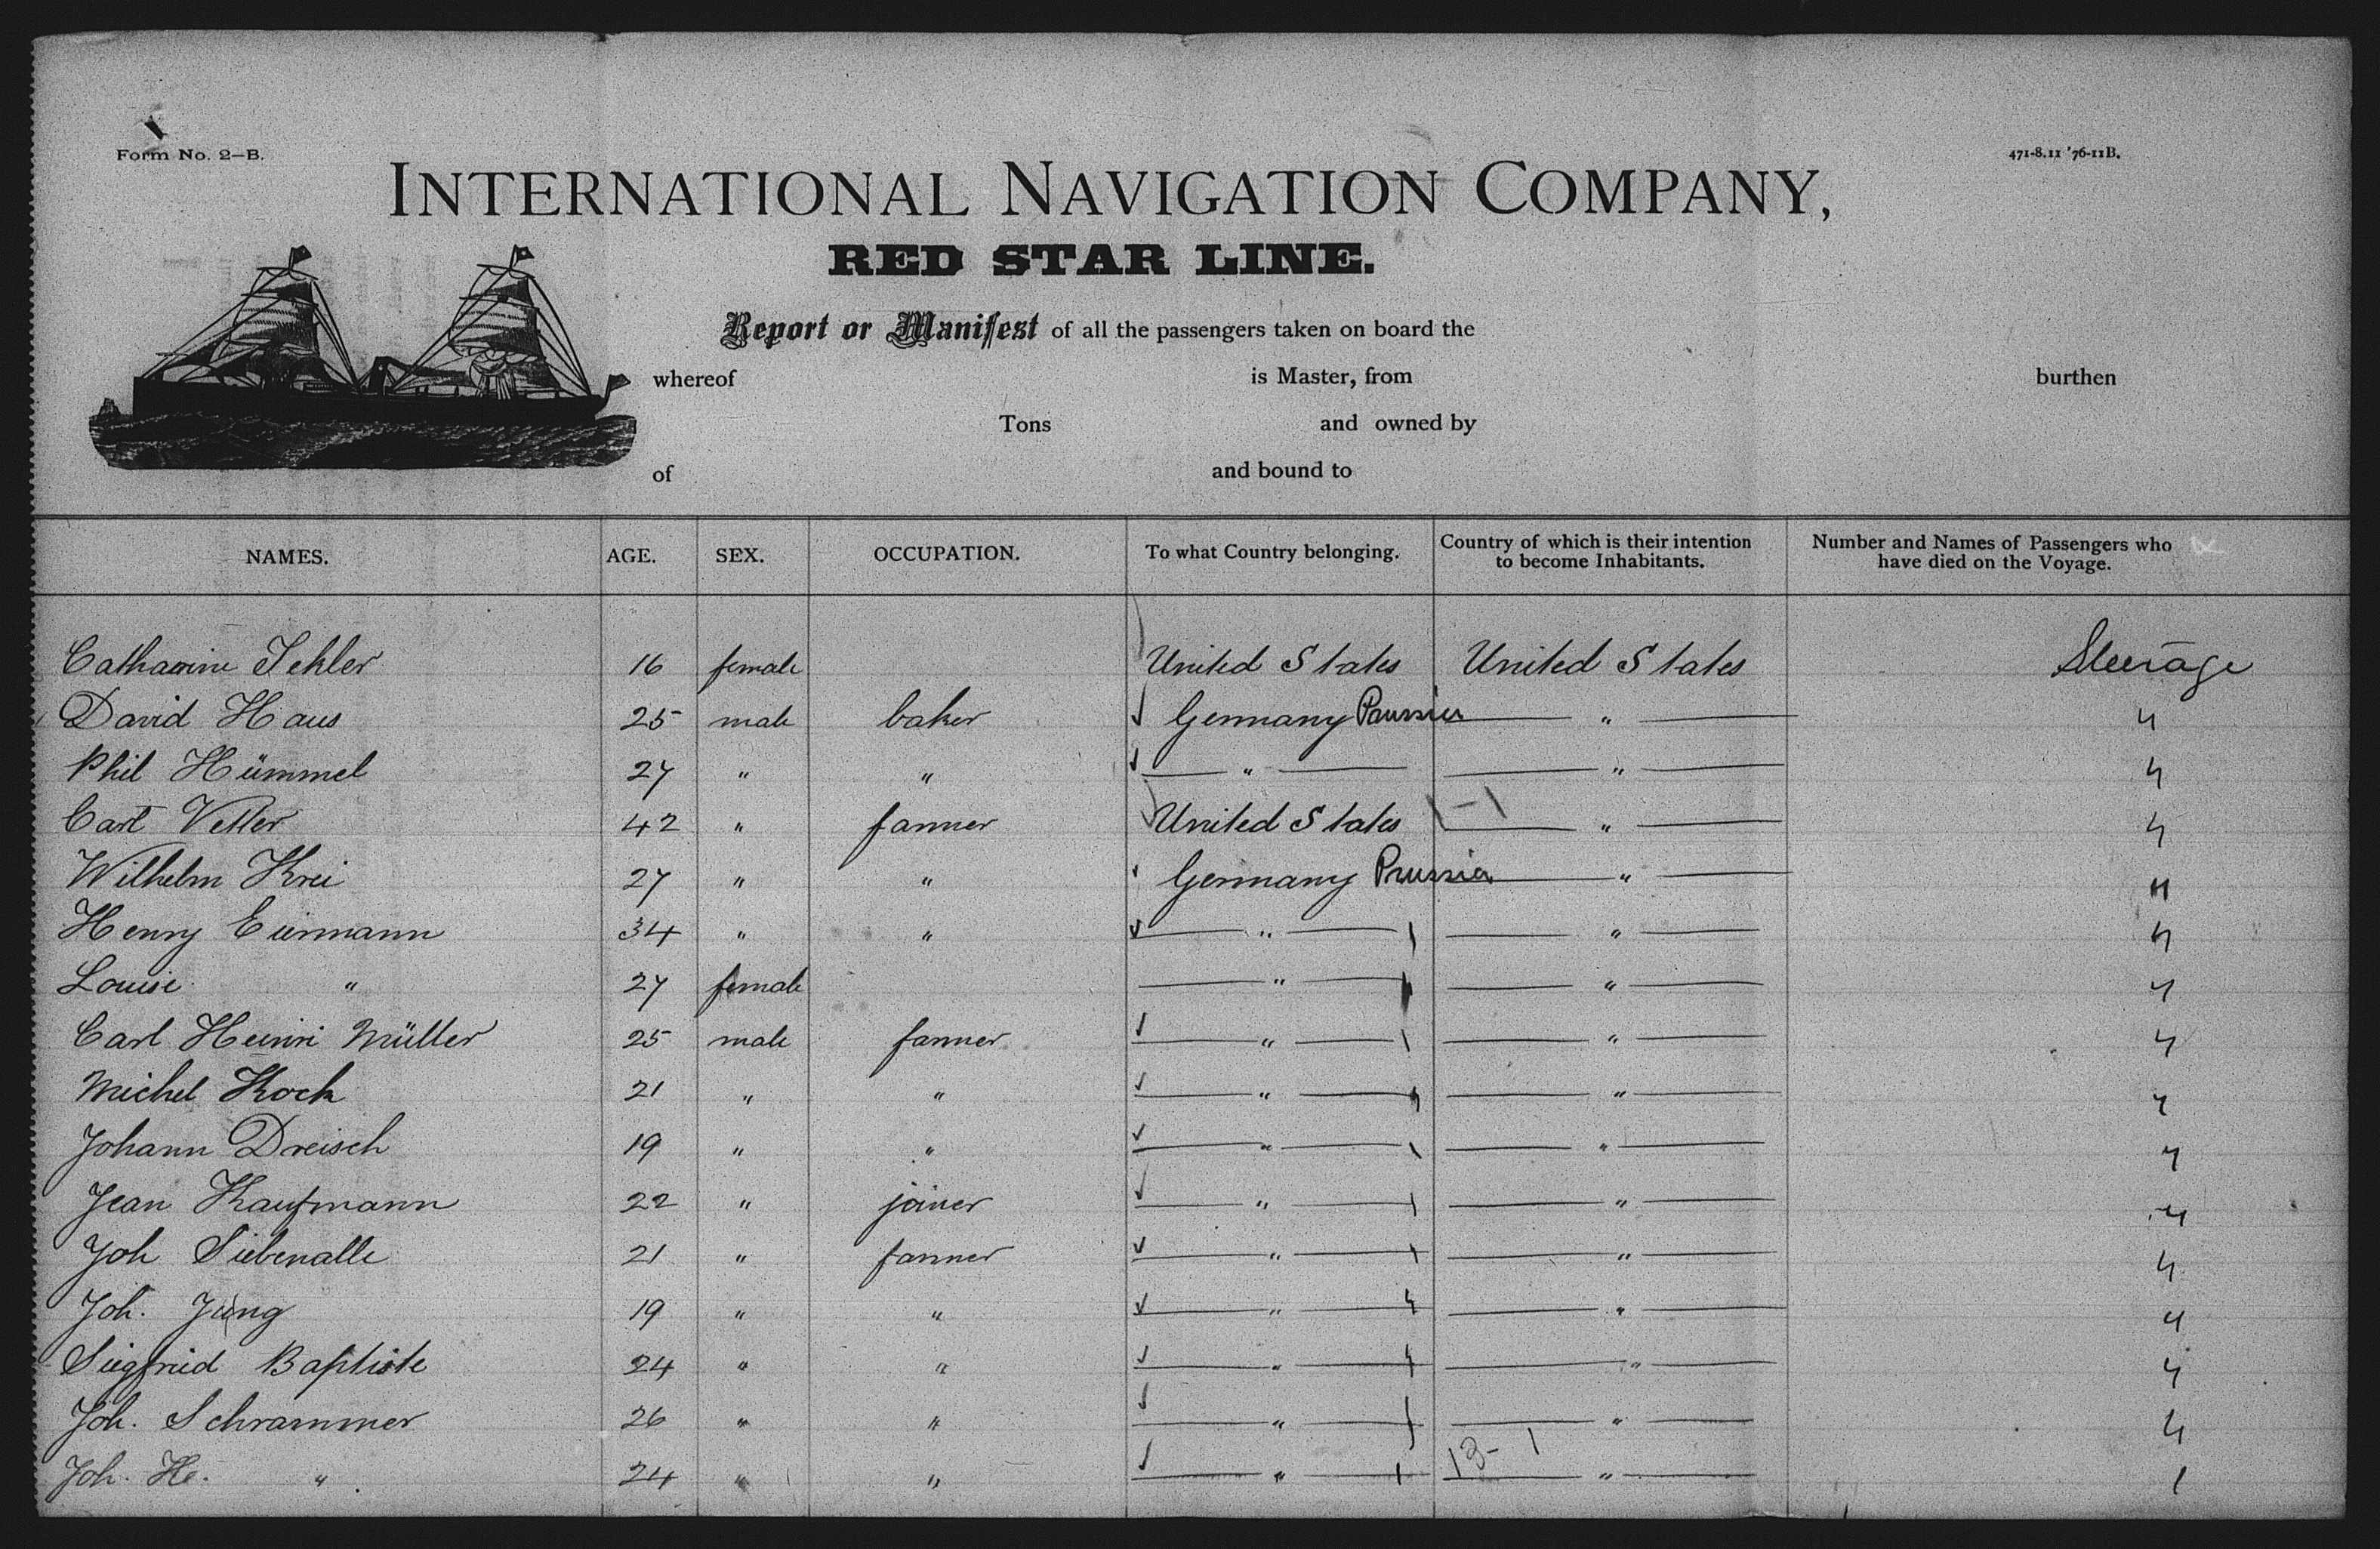 Form No. 2-B.
471-8.11 '76-11B.
INTERNATIONAL NAVIGATION COMPANY,
RED STAR LINE.
Report or Manifest of all the passengers taken on board the
whereof is Master, from burthen
Tons and owned by
of and bound to
NAMES. AGE. SEX. OCCUPATION. To what Country belonging. Country of which is their intention to become Inhabitants. Number and Names of Passengers who have died on the Voyage.
Catharine 16 female United States United States Steerage
David Haus 25 male baker Germany Prussia " "
Phil Hümmel 27 " " " " "
Carl Vetter 42 " farmer United States " "
Wilhelm Krei 27 " " Germany Prussia " "
Henry Eiermann 34 " " " " "
Louise " 27 female " " "
Carl Heinri Müller 25 male farmer " " "
Michel Koch 21 " " " " "
Johann Dreisch 19 " " " " "
Jean Kaufmann 22 " joiner " " "
Joh Siebenalle 21 " farmer " " "
Joh. Jung 19 " " " " "
Siegfried Baptiste 24 " " " " "
Joh. Schrammer 26 " " " " "
Joh. He. " 24 " " " 13- 1 "